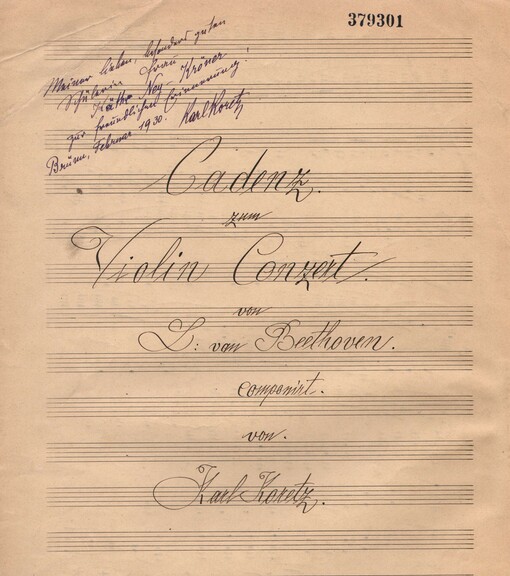 379301
Meiner lieben, besonders guten
Schülerin Frau
Käthe Ney-Kröner
zur freundlichen Erinnerung!
Brünn, Februar 1930. Karl Koretz
Cadenz.
zum
Violin Conzert.
von
L: van Beethoven.
componirt.
von.
Karl Koretz.